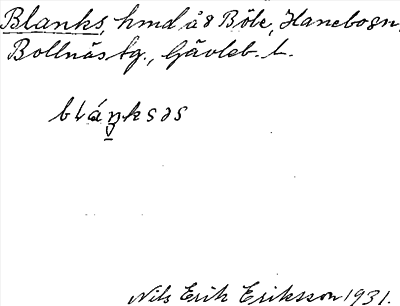 Blanks, hmd å 8 Böle, Hanebo sn,
Bollnäs tg., Gävleb. l.
bláŋksəs
Nils Erik Eriksson 1931.